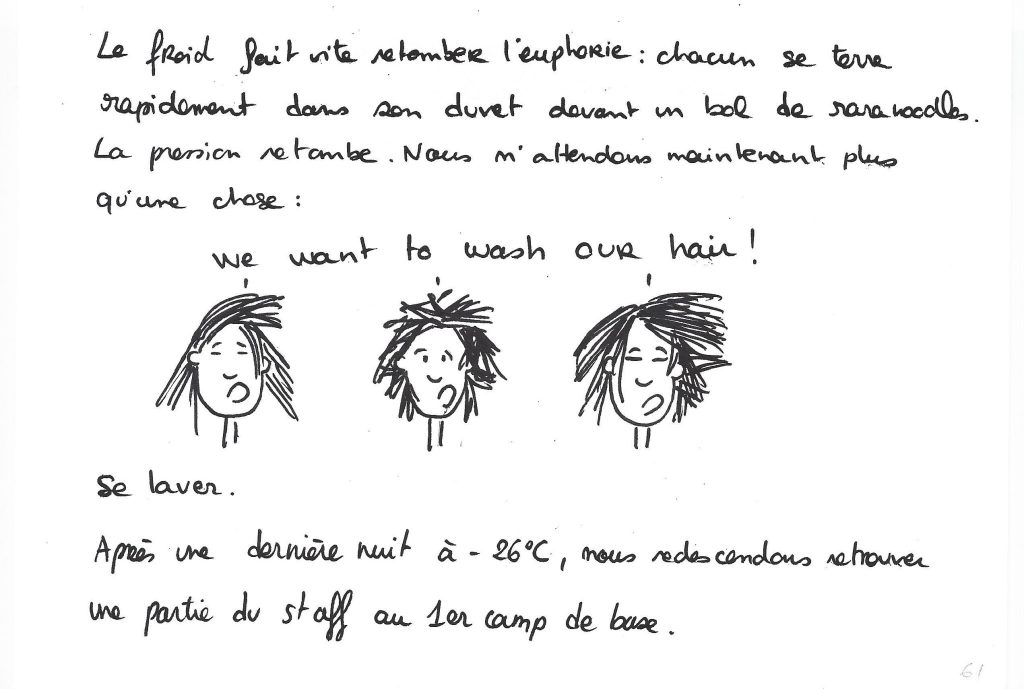 Le froid fait vite retomber l'euphorie : chacun se terre
rapidement dans son duvet devant un bol de raranoodles.
La pression retombe. Nous n'attendons maintenant plus
qu'une chose :
we want to wash our hair !
Se laver.
Après une dernière nuit à - 26°C, nous redescendons retrouver
une partie du staff au 1er camp de base.
61